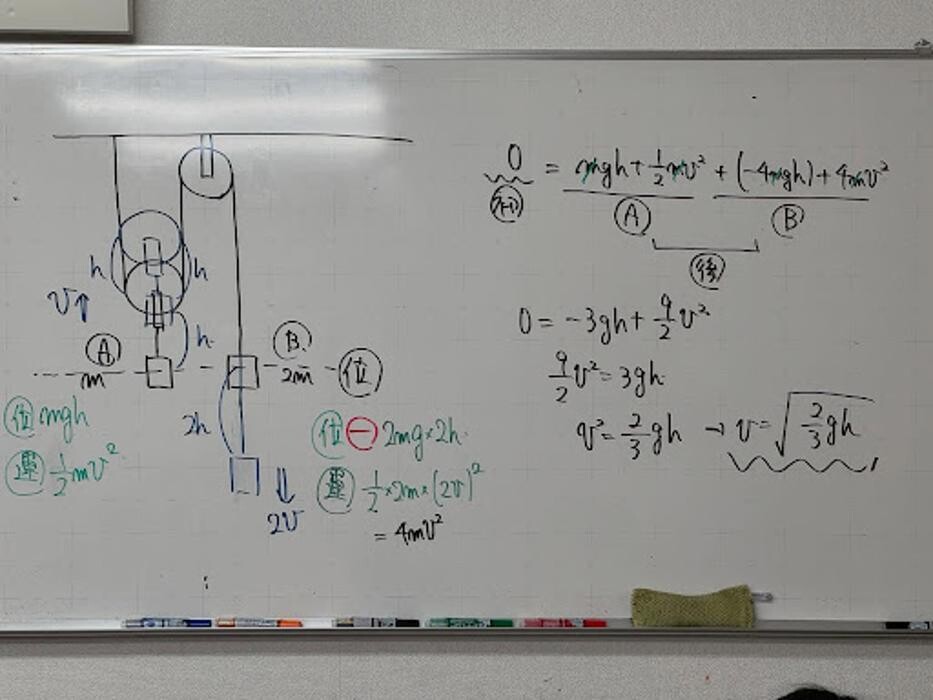 h h
v↑ h
Ⓐ m Ⓑ 2m 位
位 mgh
運 1/2 mv²
2h
2v
位 ⊖ 2mg×2h
運 1/2×2m×(2v)²
= 4mv²
0 = mgh + 1/2 mv² + (-4mgh) + 4mv²
Ⓐ Ⓑ
後
0 = -3gh + 9/2 v²
9/2 v² = 3gh
v² = 2/3 gh → v = √(2/3 gh)